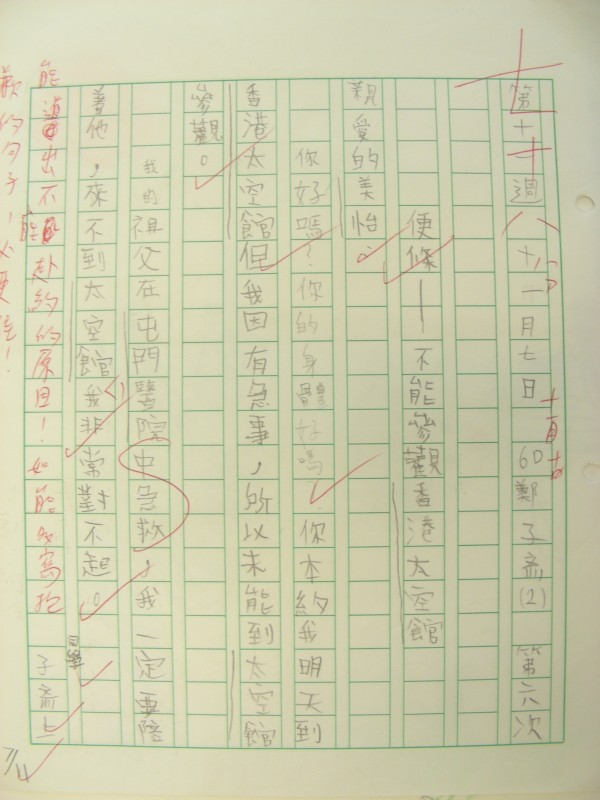 第十一週
十一月七日 6D 鄭子斋(2) 第六次
便條——不能參觀香港太空館
親愛的美怡：
你好嗎？你的身體好嗎？你本約我明天到
香港太空館，但我因有急事，所以未能到太空館
參觀。
我的祖父在屯門醫院中急救，我一定要陪
著他，來不到太空館，我非常對不起。
同學
子斋上
7/11
能道出不能赴約的原因！如能多寫抱
歉的句子！必更佳！